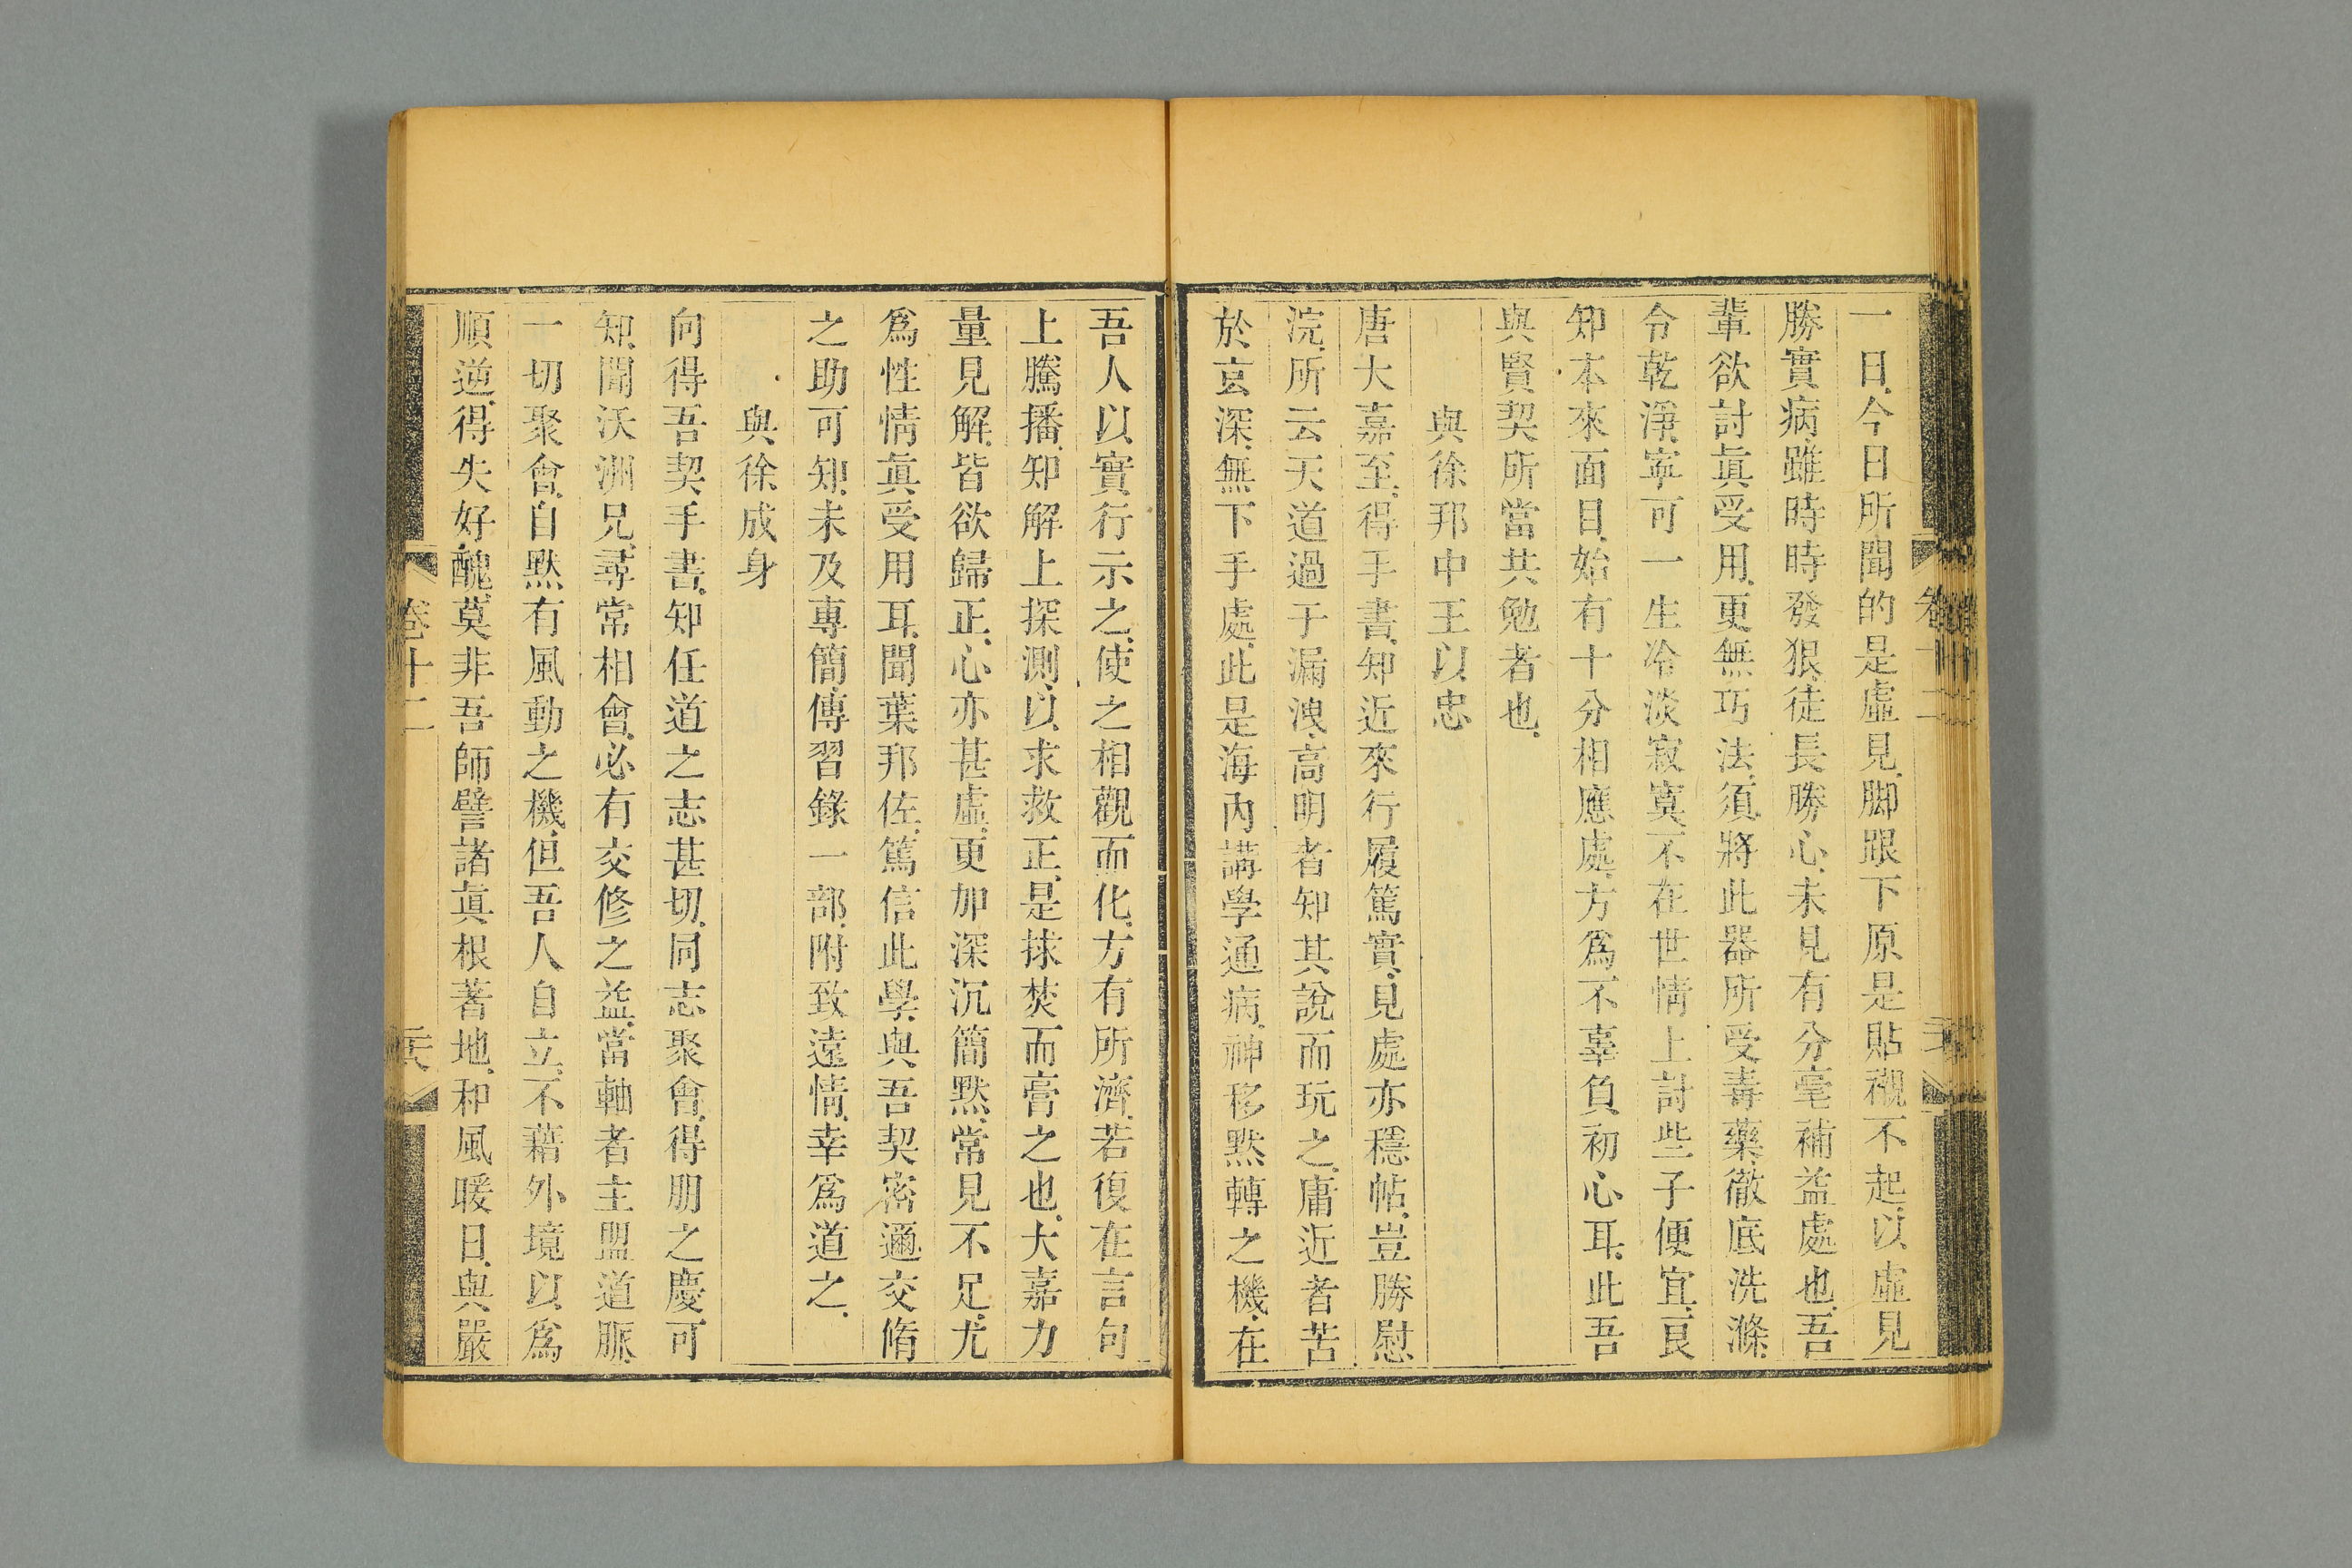 一日今日所聞的是虛見脚跟下原是貼襯不起以虛見
勝實病雖時時發狠徒長勝心未見有分毫補益處也吾
輩欲討眞受用更無巧法須將此器所受毒藥徹底洗滌
令乾淨寧可一生冷淡寂寞不在世情上討些子便宜良
知本來面目始有十分相應處方爲不辜負初心耳此吾
與賢契所當共勉者也
與徐邦中王以忠
唐大嘉至得手書知近來行履篤實見處亦穩帖豈勝慰
浣所云天道過于漏洩高明者知其說而玩之庸近者苦
於玄深無下手處此是海內講學通病神移默轉之機在
卷十二
吾人以實行示之使之相觀而化方有所濟若復在言句
上騰播知解上探測以求救正是捄焚而膏之也大嘉力
量見解皆欲歸正心亦甚虛更加深沉簡默常見不足尤
爲性情眞受用耳聞葉邦佐篤信此學與吾契密邇交脩
之助可知未及專簡傳習錄一部附致遠情幸爲道之
與徐成身
向得吾契手書知任道之志甚切同志聚會得朋之慶可
知聞沃洲兄尋常相會必有交修之益當軸者主盟道脈
一切聚會自默有風動之機但吾人自立不藉外境以爲
順逆得失好醜莫非吾師譬諸眞根著地和風暖日與嚴
卷十二